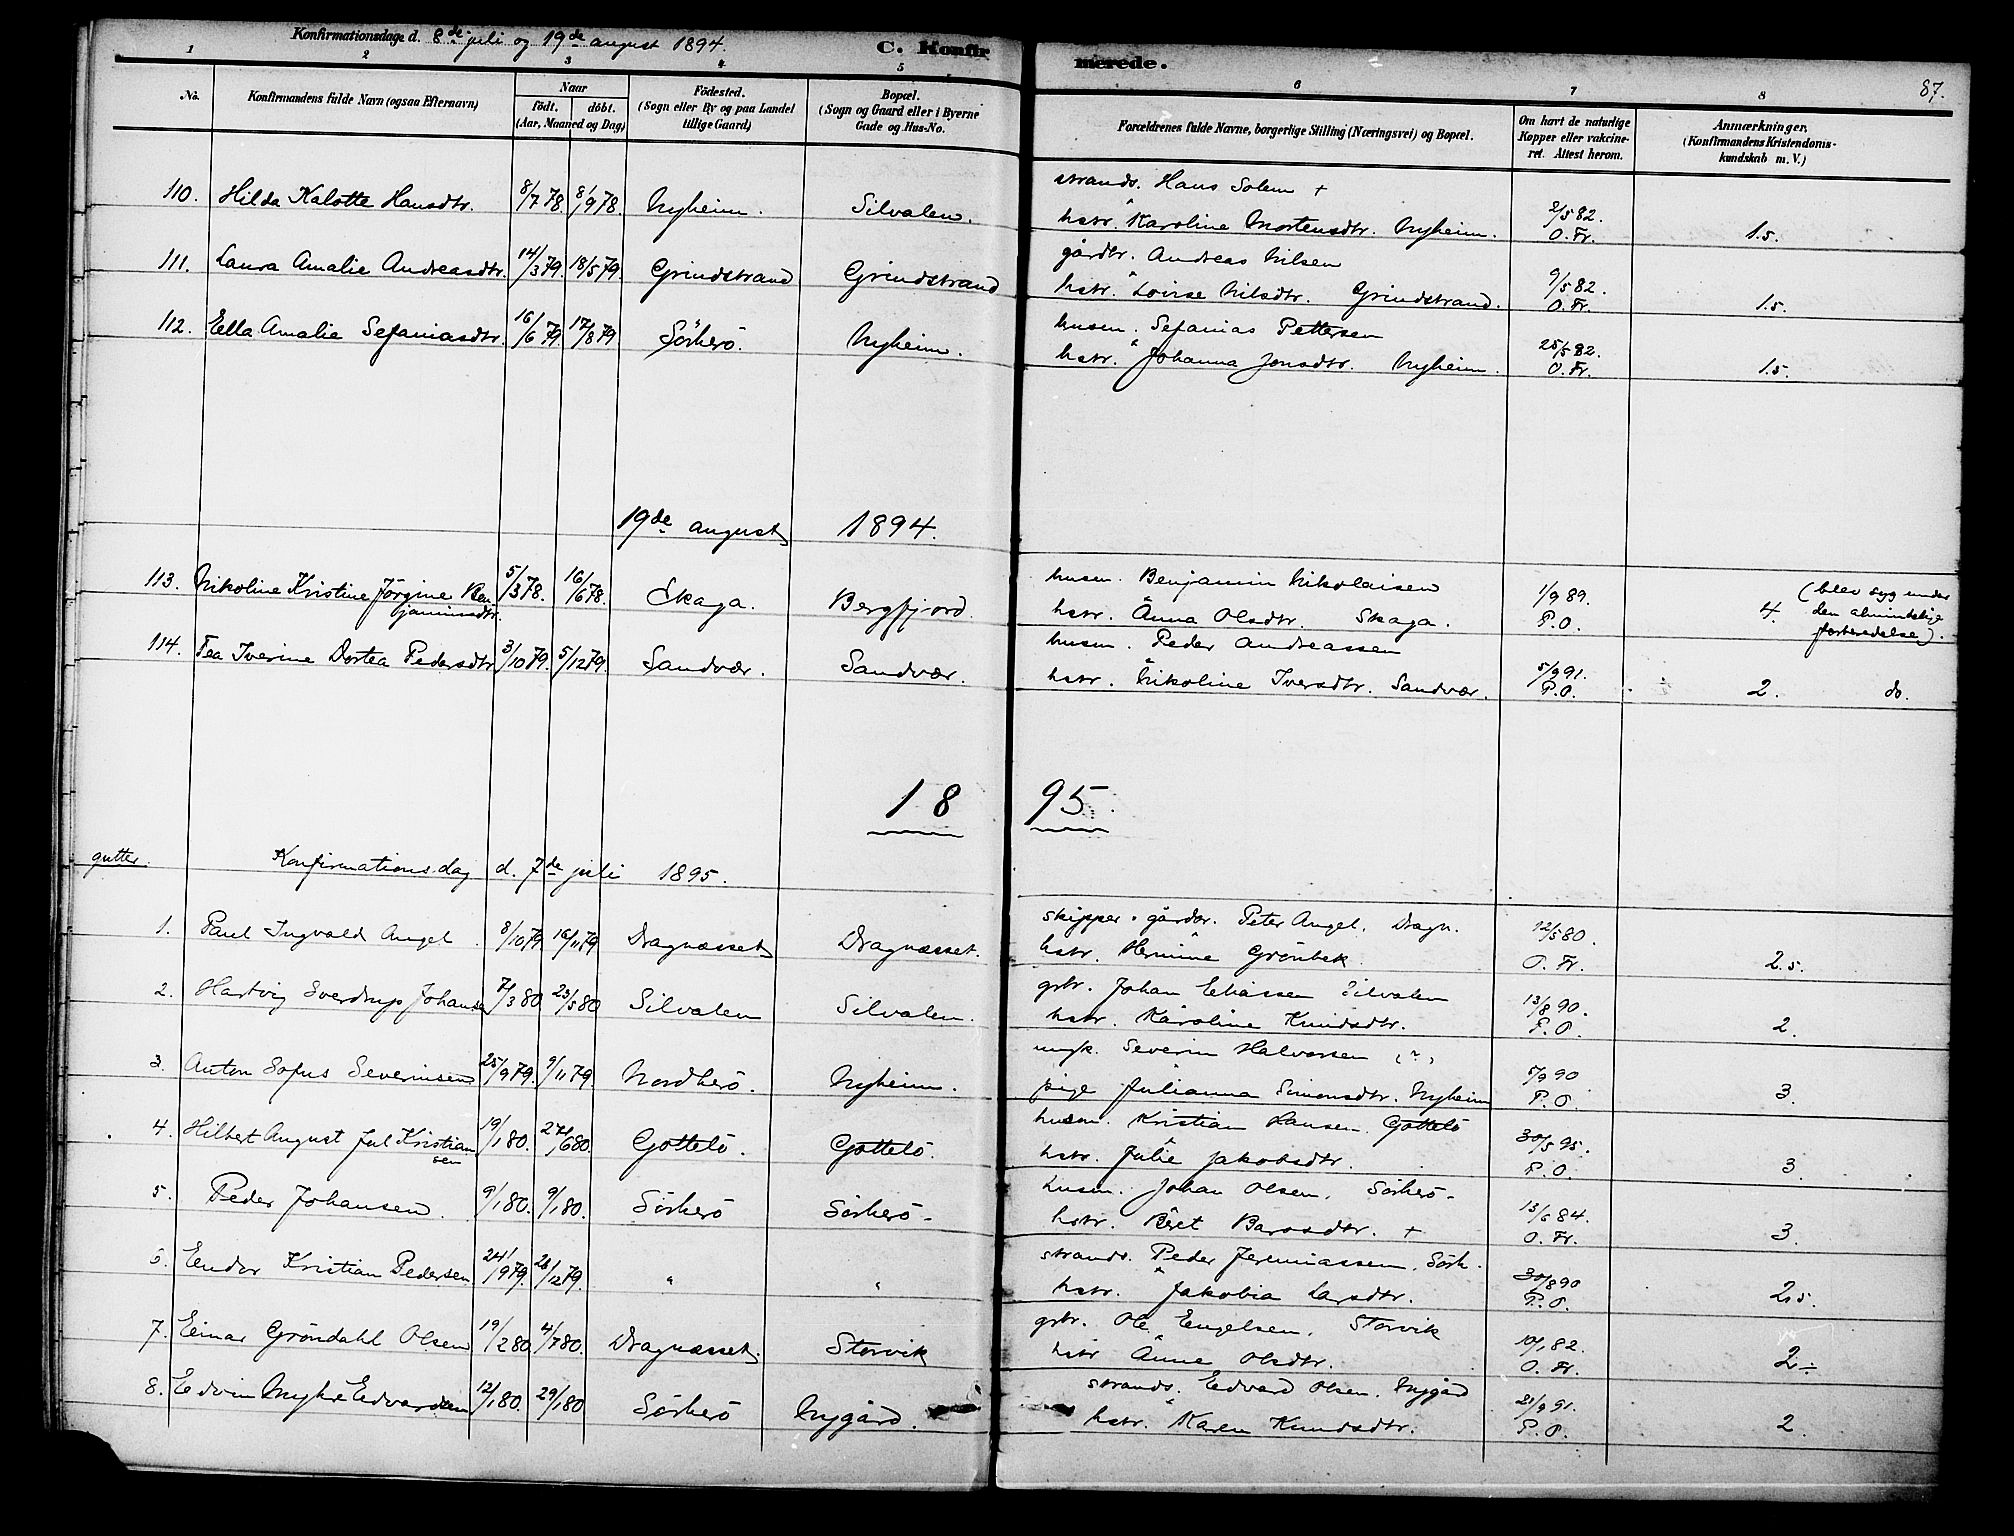 Konfirmationsdage d. 8de juli og 19de august 1894.
C. Konfirmerede.
87.
1 2 3 4 5 6 7 8
No. Konfirmandens fulde Navn (ogsaa Efternavn) Naar födt. döbt. (Aar, Maaned og Dag) Födested. (Sogn eller By og paa Landet tillige Gaard) Bopæl. (Sogn og Gaard eller i Byerne Gade og Hus-No. Forældrenes fulde Navne, borgerlige Stilling (Næringsvei) og Bopæl. Om havt de naturlige Kopper eller vakcineret. Attest herom. Anmærkninger, (Konfirmandens Kristendomskundskab m. V.)
110. Hilda Kalotte Hansdtr. 8/7 78. 8/9 78. Nyheim. Silvalen. strands. Hans Solem +
hstr. Karoline Mortensdtr. Nyheim. 2/5 82. O. Fr. 1.5.
111. Laura Amalie Andreasdtr. 14/3 79. 18/5 79. Grindstrand Grindstrand gårdbr. Andreas Nilsen
hstr. Lovise Nilsdtr. Grindstrand. 9/5 82. O. Fr. 1.5.
112. Ella Amalie Sefaniasdtr. 16/6 79 17/8 79 Sörherö. Nyheim. husm. Sefanias Pettersen
hstr. Johanna Jonsdtr. Nyheim. 25/5 82. O. Fr. 1.5.
19de august 1894.
113. Nikoline Kristine Jörgine Benjaminsdtr. 5/3 78. 16/6 78. Skaga. Bergfjord. husm. Benjamin Nikolaisen
hstr. Anna Olsdtr. Skaga. 1/9 89. P.O. 4. (blev syg under den almindelige forberedelse).
114. Tea Iverine Dortea Pedersdtr. 3/10 79. 5/12 79. Sandvær. Sandvær. husm. Peder Andreassen
hstr. Nikoline Iversdtr. Sandvær. 5/9 91. P.O. 2. do.
1895.
gutter. Konfirmationsdag d. 7de juli 1895.
1. Paul Ingvald Angel. 8/10 79. 16/11 79 Dragnæsset Dragnæsset. skipper, gårdbr. Peter Angel. Dragn.
hstr. Hermine Grönbek. 12/5 80. O. Fr. 2.5.
2. Hartvig Sverdrup Johansen 7/3 80. 23/5 80 Silvalen Silvalen. grbr. Johan Eliassen Silvalen
hstr. Karoline Knudsdtr. 13/8 90. P.O. 2.
3. Anton Sofus Severinsen 25/9 79. 9/11 79 Nordherö. Nyheim. ungk. Severin Halvorsen (?)
pige Julianna Simonsdtr. Nyheim 5/9 90 P.O. 3.
4. Hilbert August Jul Kristiansen 19/1 80. 27/6 80. Gåttelö. Gåttelö. husm. Kristian Hansen. Gåttelö
hstr. Julie Jakobsdtr. 30/5 95. P.O. 3
5. Peder Johansen. 9/1 80. 9/1 80. Sörherö Sörherö. husm. Johan Olsen. Sörherö.
hstr. Beret Barosdtr. + 13/6 84. O. Fr. 3.
6. Eendor Kristian Pedersen 24/9 79. 28/12 79. " " strands. Peder Jeremiassen. Sörh.
hstr. Jakobia Larsdtr. 30/8 90 P.O. 2.5.
7. Einar Gröndahl Olsen 19/2 80. 4/7 80. Dragnæsset. Storvik grbr. Ole Engelsen. Storvik
hstr Anne Olsdtr. 10/1 82. O. Fr. 2÷
8. Edvin Myhre Edvardsen 12/1 80. 29/1 80 Sörherö Nygård. strands. Edvard Olsen. Nygård
hstr. Karen Knudsdtr. 21/9 91. P.O. 2.